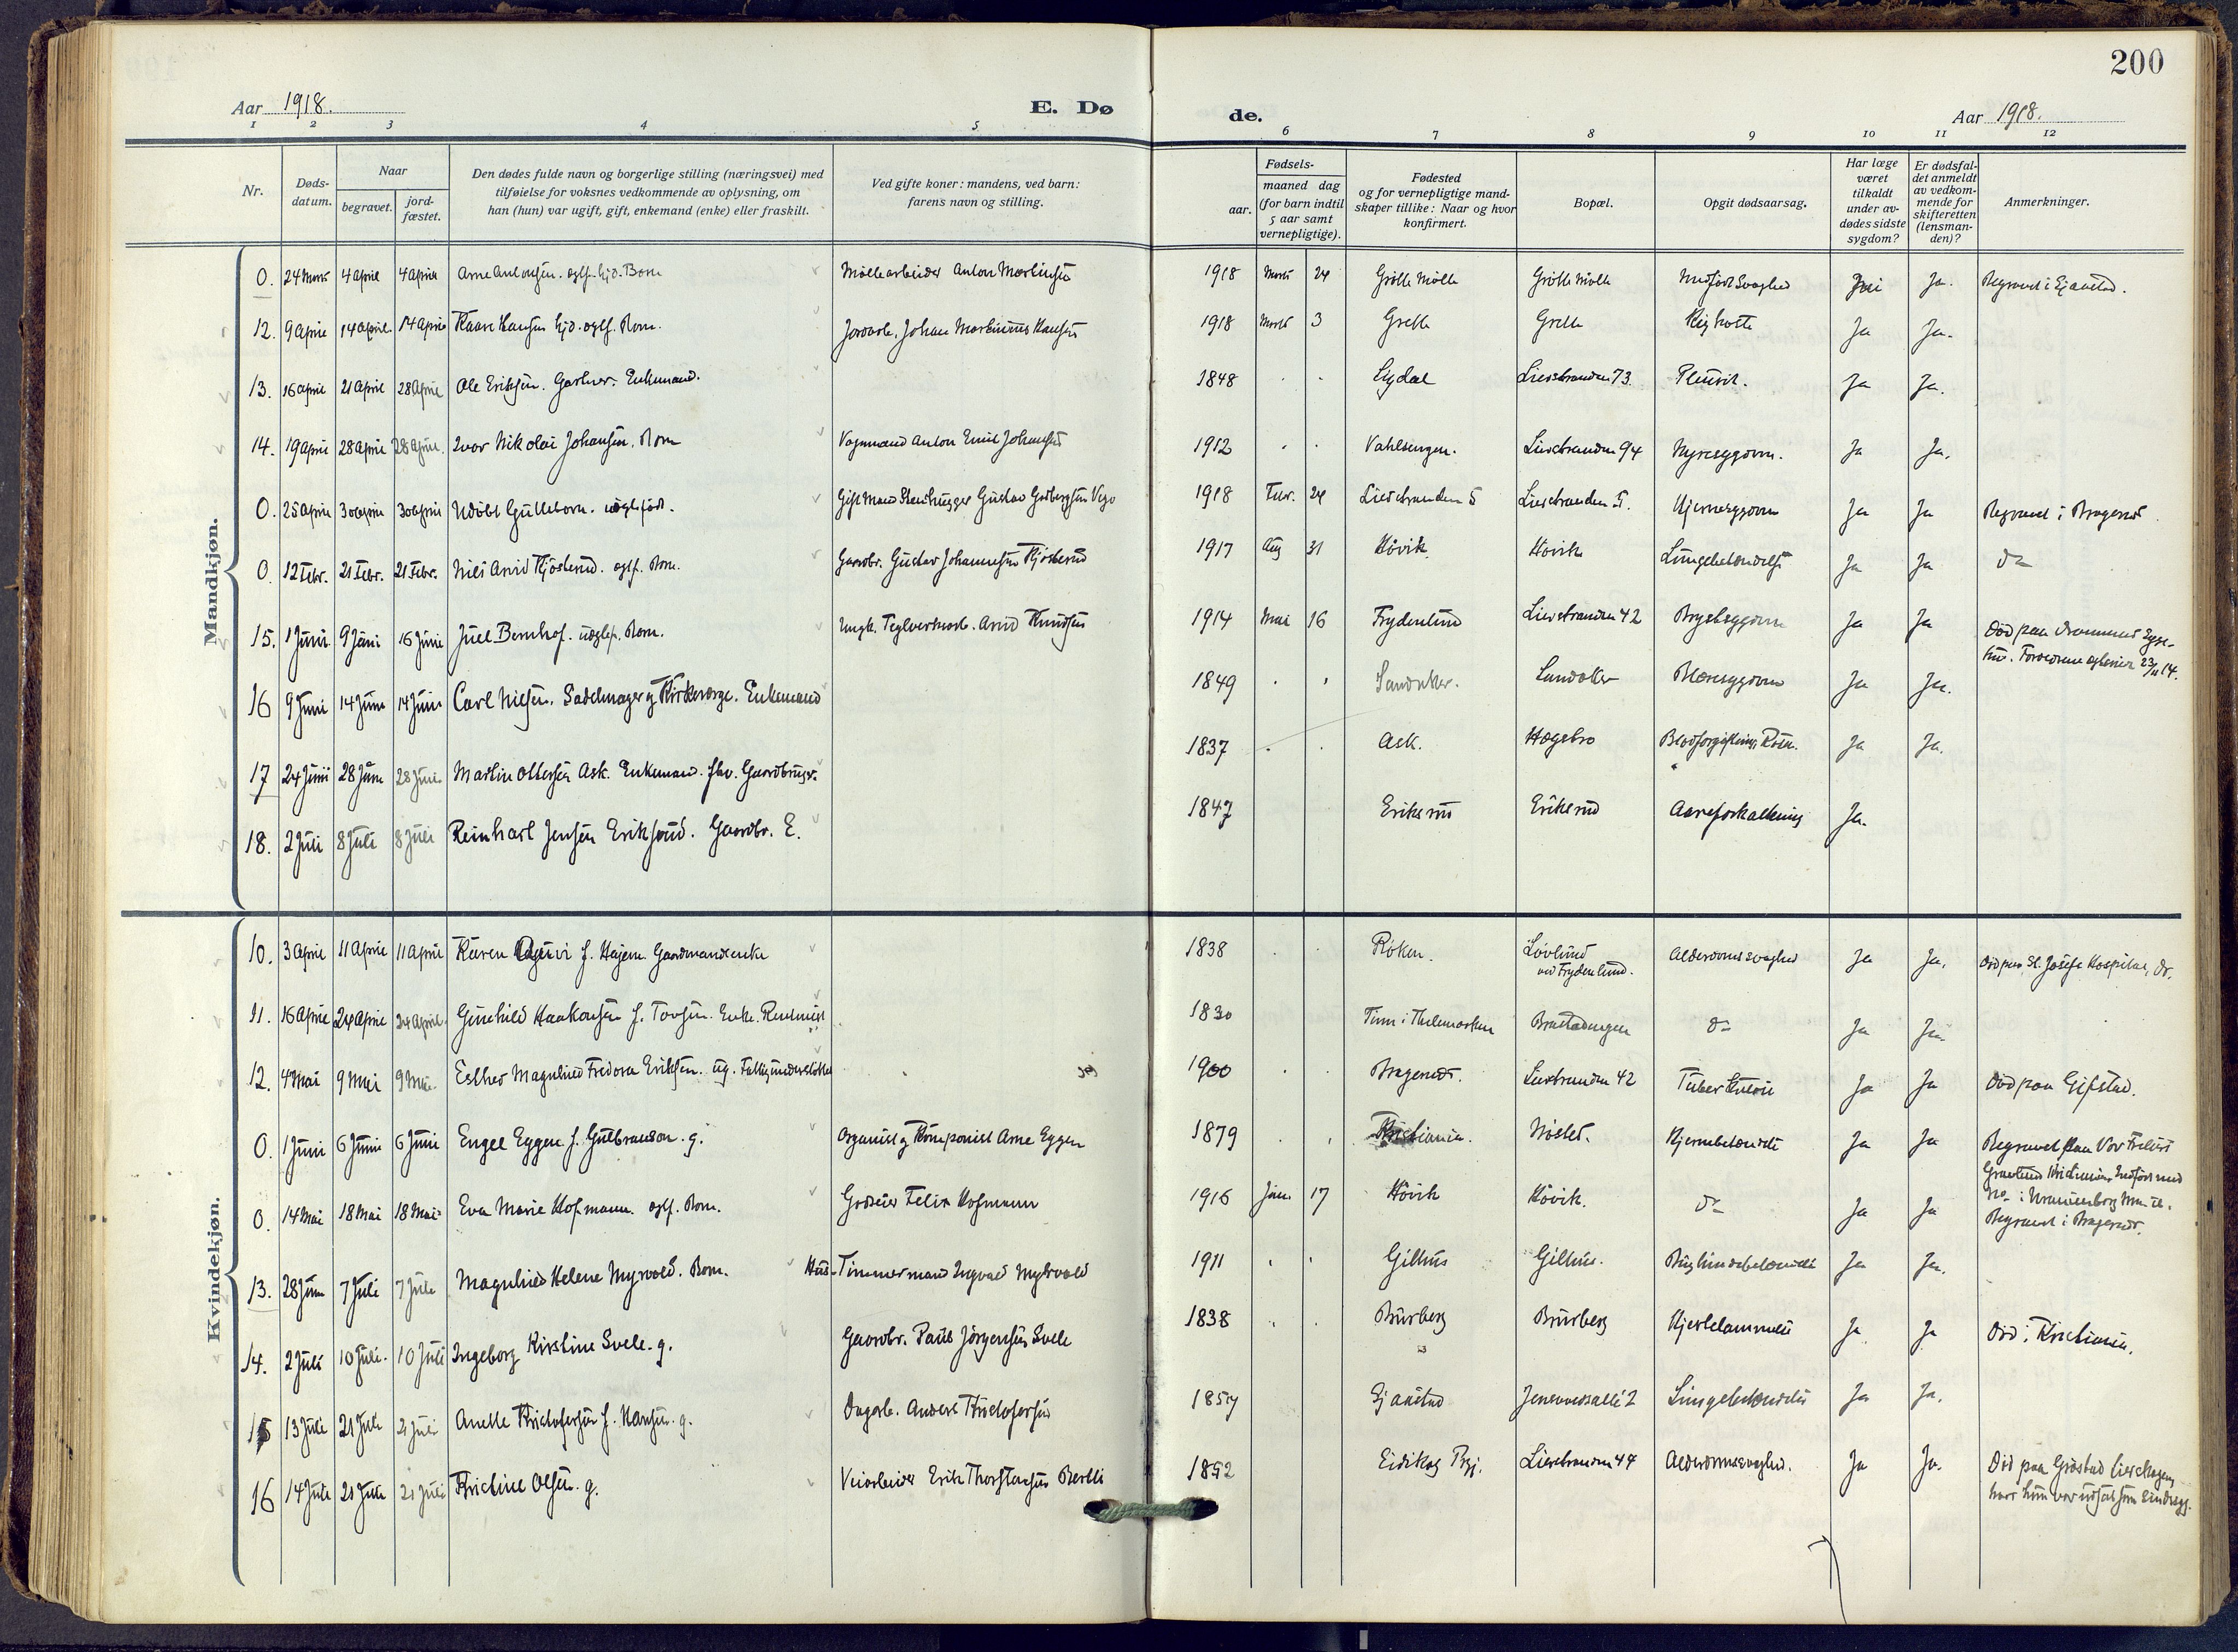 200
Aar 1918.
E. Dø
de.
Aar 1918.
1 2 3 4 5 6 7 8 9 10 11 12
Nr.
Døds-
datum.
Naar
begravet.
jord-
fæstet.
Den dødes fulde navn og borgerlige stilling (næringsvei) med
tilføielse for voksnes vedkommende av oplysning, om
han (hun) var ugift, gift, enkemand (enke) eller fraskilt.
Ved gifte koner: mandens, ved barn:
farens navn og stilling.
Fødsels-
aar.
maaned dag
(for barn indtil
5 aar samt
vernepligtige).
Fødested
og for vernepligtige mand-
skaper tillike: Naar og hvor
konfirmert.
Bopæl.
Opgit dødsaarsag.
Har læge
været
tilkaldt
under av-
dødes sidste
sygdom?
Er dødsfal-
det anmeldt
av vedkom-
mende for
skifteretten
(lensman-
den)?
Anmerkninger.
Mandkjøn.
0. 24 Marts 4 April 4 April Arne Antonsen. egtf. hjd. Barn Møllearbeider Anton Martinsen 1918 Marts 24 Grølle Mølle Grølle Mølle Medfødt Svaghed Nei Ja. Begravet i Gjaastad.
12. 9 April 14 April 14 April Kaare Hansen hjd. egtf. Barn. Jordarb. Johan Martinius Hansen 1918 Marts 3 Grette Grette Kighoste Ja Ja.
13. 16 April 21 April 28 April Ole Eriksen. Gartner. Enkemand. 1848 Sigdal Lierstranden 73 Pleurit. Ja Ja.
14. 19 April 28 April 28 April. Ivar Nikolai Johansen. Barn Vognmand Anton Emil Johansen 1912 Vahlsengen. Lierstranden 94 Nyresygdom. Ja Ja.
0. 25 April 30 April 30 April Udøbt Gutteborn. uegtefødt. Gift Mand Stenhugger Gustav 1918 Febr. 24 Lierstranden 5 Lierstranden 5. Hjernesygdom Ja Ja Begravet i Bragernes
0. 12 Febr. 21 Febr. 21 Febr. Nils Arvid Kjøsterud. egtf. Barn. Gaardbr. Gustav Johannesen Kjøsterud 1917 Aug 31 Høvik Høvik Lungebetændelse Ja Ja do
15. 1 Juni 9 Juni 16 Juni Juel Bernhof. uegtef. Barn. Ungk. Teglverksarb. Arvid Knudsen 1914 Mai 16 Frydenlund Lierstranden 42 Brystsygdom Ja Ja Død paa Drammens Syge-
hus. Forældrene egteviet 23/11 14.
16 9 Juni 14 Juni 14 Juni Carl Nilsen. Sadelmager og Kirkeværge. Enkemand 1849 Sandaker. Sandaker Blæresygdom Ja Ja.
17 24 Juni 28 Juni 28 Juni. Martin Ottersen Ask. Enkemand. fhv. Gaardbruger. 1837 Ask. Hægsbro Blodforgiftning, Ja Ja.
18. 2 Juli 8 Juli 8 Juli Reinhart Jensen Eriksrud. Gaardbr. E. 1847 Eriksrud Eriksrud Aareforkalkning Ja.
Kvindekjøn.
10. 3 April 11 April 11 April Karen f. Hajem. Gaardmandsenke 1838 Røken. Løvlund
ved Frydenlund. Alderdomssvaghed Ja Ja. Død paa St. Josefs Hospital, Dr.
11. 16 April 24 April 24 April. Gunhild Haakonsen f. Torsen. Enke. 1830 Tinn i Thelemarken Brastadengen do Ja Ja.
12. 4 Mai 9 Mai 9 Mai. Esther Magnhild Fredora Eriksen. ug. Fattigunderstøttet 1900 Bragernes. Lierstranden 42 Tuberkulose Ja Ja Død paa Gifstad.
0. 1 Juni 6 Juni 6 Juni Engel Eggen f. Gulbranson. g. Organist og Komponist Arne Eggen 1879 Kristiania. Nøstet. Hjernebetændelse Ja Ja Begravet paa Vor Frelsers
Gravlund Kristiania. Indført med
No - i Uranienborg Min.b.
0. 14 Mai 18 Mai 18 Mai Eva Marie Hofmann. egtf. Barn. Godseier Felix Hofmann 1916 Jan. 17 Høvik Høvik. do Ja Ja Begravet i Bragernes.
13. 28 Juni 7 Juli 7 Juli Magnhild Helene Myrvold. Barn. Hus-Timmermand Ingvald Myhrvold 1911 Gilhus Gilhus. Bughindebetændelse Ja Ja.
14. 2 Juli 10 Juli. 10 Juli Ingeborg Kirstine Svele. g. Gaardbr. Paul Jørgensen Svele 1838 Burberg Burberg Hjertelammelse Ja Ja Død i Kristiania.
15 13 Juli 21 Juli 21 Juli Anette Kristofersen f. Hansen. g. Dagarb. Anders Kristofersen 1857 Gjaastad 2 Lungebetændelse Ja Ja.
16 14 Juli 21 Juli 21 Juli Kristine Olsen. g. Veiarbeider Erik Thorstensen Bertli 1852 Eidskog Pgj. Lierstranden 44 Alderdomssvaghed. Ja Ja. Død paa Grøstad Lierskogen,
hvor hun var udsat som Sindssyg.